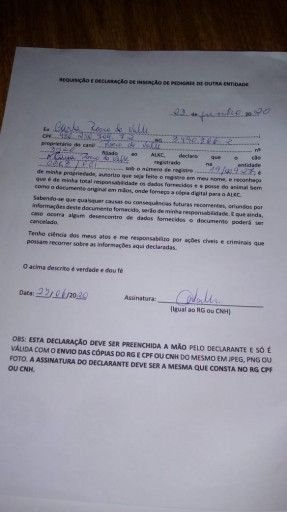 REQUISIÇÃO E DECLARAÇÃO DE INSERÇÃO DE PEDIGREE DE OUTRA ENTIDADE
23 de junho de 20
Eu do Valle
CPF RG
proprietário de canil do Valle nº
filiado ao ALKC, declaro que o cão
do Valle registrado na entidade
sob o número de registro é
de minha propriedade, autorizo que seja feito o registro em meu nome, e reconheço
que é de minha total responsabilidade os dados fornecidos e a posse do animal bem
como o documento original em mãos, onde forneço a cópia digital para o ALKC.
Sabendo-se que quaisquer causas ou consequências futuras recorrentes, oriundos por
informações deste documento fornecido, serão de minha responsabilidade. E que ainda,
caso ocorra algum desencontro de dados fornecidos o documento poderá ser
cancelado.
Tenho ciência dos meus atos e me responsabilizo por ações cíveis e criminais que
possam recorrer sobre as informações aqui declaradas.
O acima descrito é verdade e dou fé
Data: 23/06/2020 Assinatura:
(Igual ao RG ou CNH)
OBS: ESTA DECLARAÇÃO DEVE SER PREENCHIDA A MÃO PELO DECLARANTE E SÓ É
VÁLIDA COM O ENVIO DAS CÓPIAS DO RG E CPF OU CNH DO MESMO EM JPEG, PNG OU
FOTO. A ASSINATURA DO DECLARANTE DEVE SER A MESMA QUE CONSTA NO RG CPF
OU CNH.